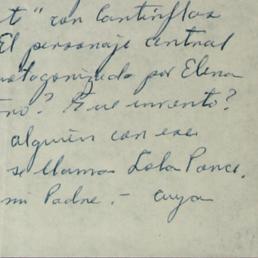 t" con Cantinflas
El personaje central
rotagonizado por Elena
no? Fue invento?
alguien con ese
se llamas Lola Ponce.
mi Padre. - cuya